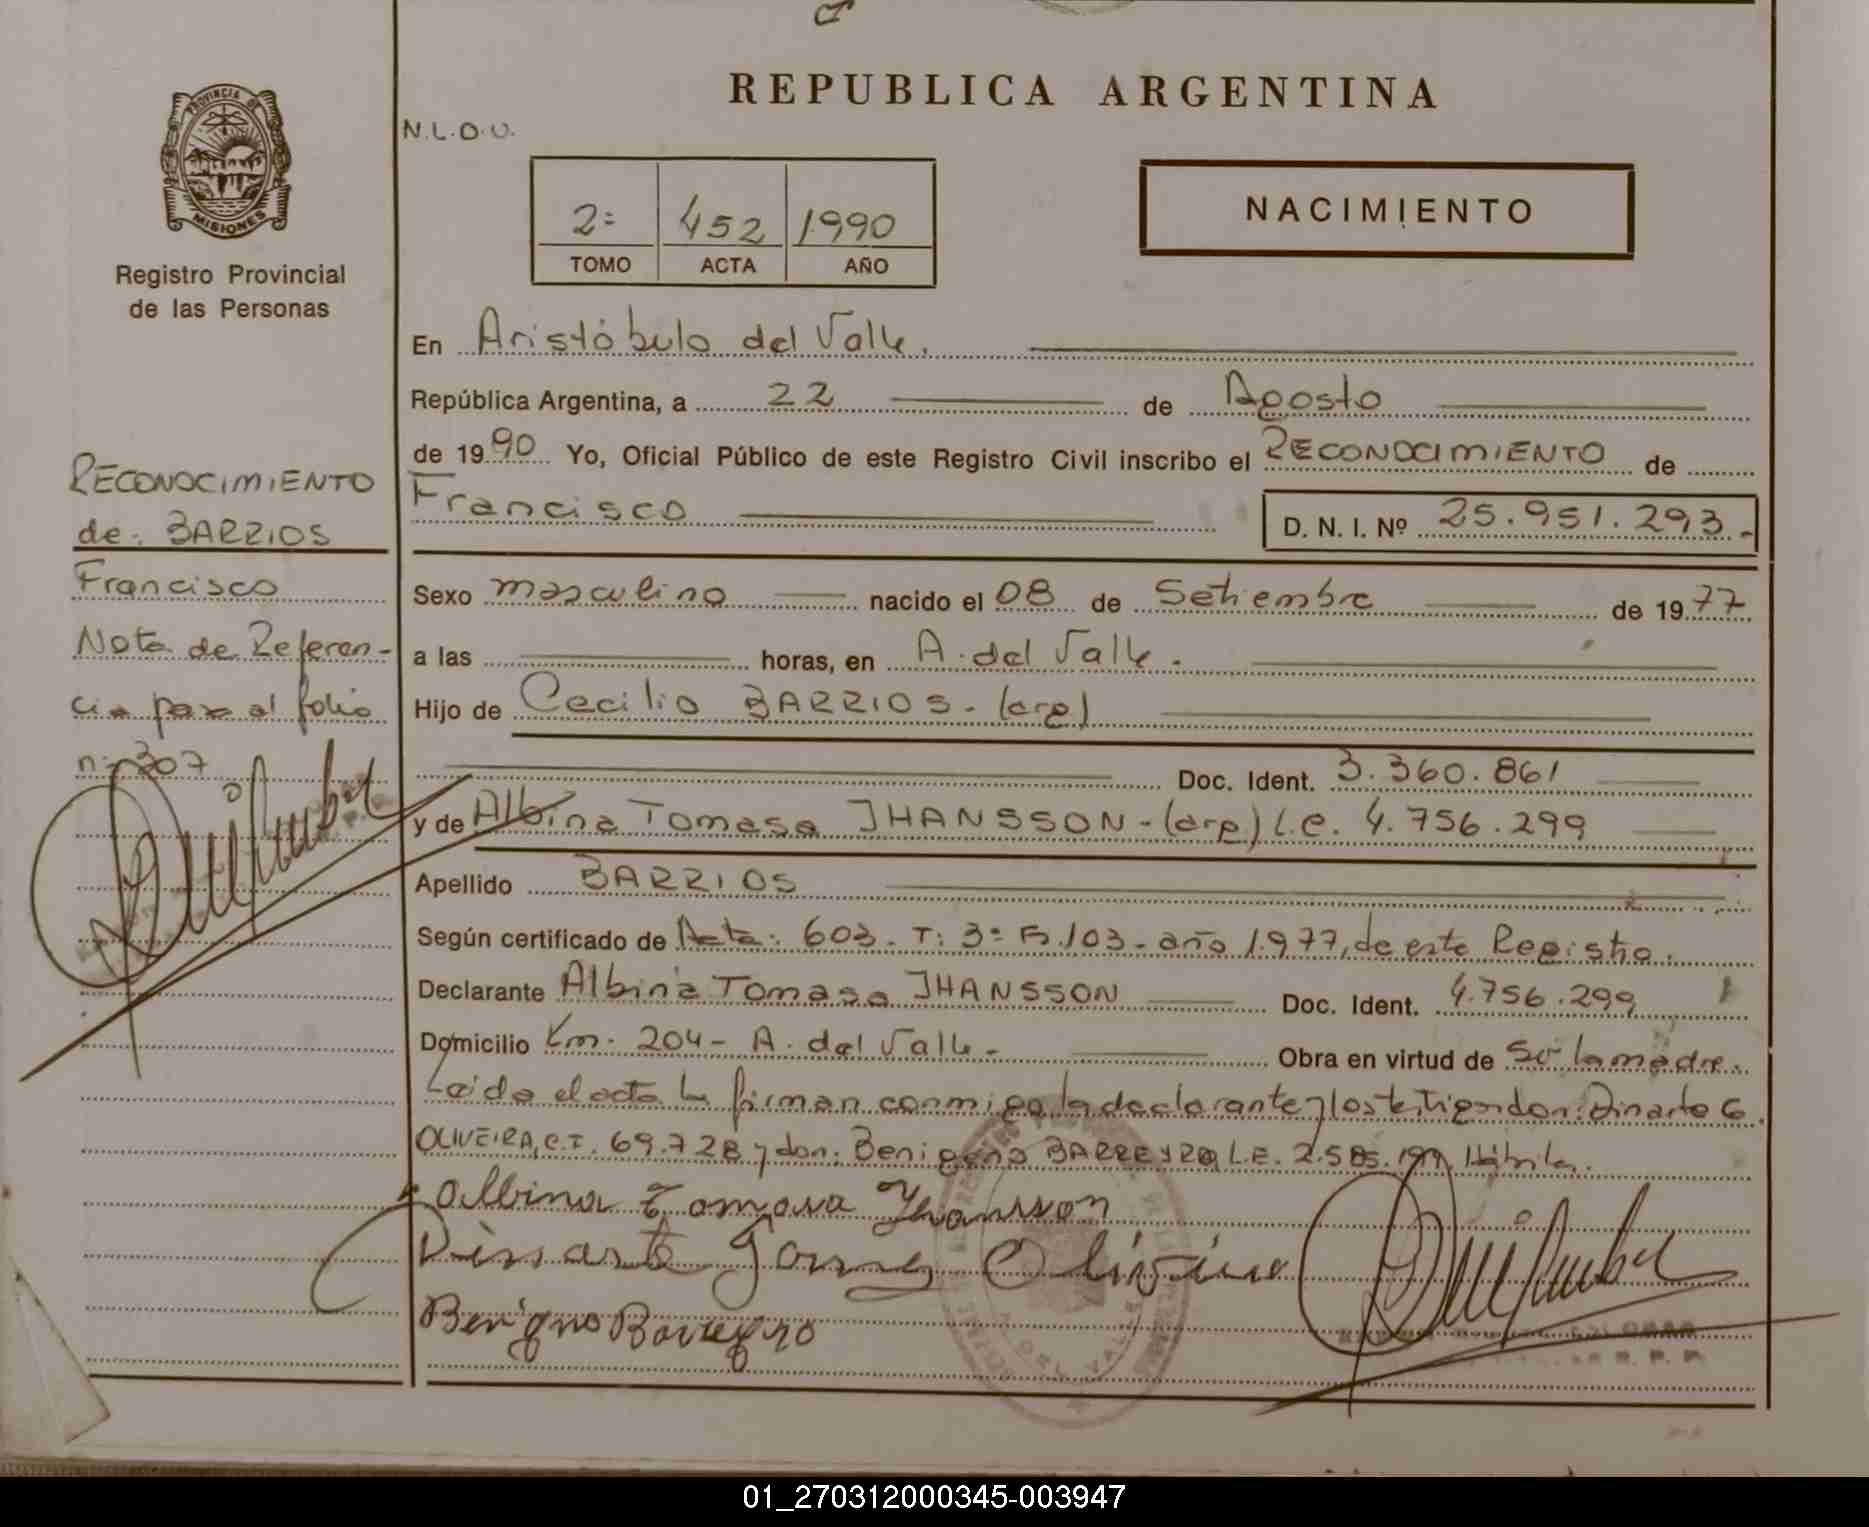 REPUBLICA ARGENTINA
PROVINCIA DE
MISIONES
Registro Provincial
de las Personas
N.L.O.U.
2º 452 1990
TOMO ACTA AÑO
NACIMIENTO
En Aristóbulo del Valle.
República Argentina, a 22 de Agosto
de 1990 Yo, Oficial Público de este Registro Civil inscribo el RECONOCIMIENTO de
Francisco D. N. I. Nº 25.951.293.-
Sexo masculino nacido el 08 de Setiembre de 1977
a las horas, en A. del Valle.
Hijo de Cecilio BARRIOS.- (arg)
Doc. Ident. 3.360.861
y de Albina Tomasa JHANSSON-(arg) L.C. 4.756.299
Apellido BARRIOS
Según certificado de Acta: 603. T: 3º F. 103. año 1.977, de este Registro.
Declarante Albina Tomasa JHANSSON Doc. Ident. 4.756.299
Domicilio Km. 204- A. del Valle.- Obra en virtud de Ser la madre.
Leida el acta la firman conmigo la declarante y los testigos don: Dinarte G.
OLIVEIRA, C.I. 69.728 y don: Benigno BARREYRO, L.E. Hábiles.
Albina Tomasa Jhansson
Dinarte Gomes Oliveira
Benigno Barreyro
RECONOCIMIENTO
de: BARRIOS
Francisco
Nota de Referen-
cia pasa al folio
nº 307
01_270312000345-003947